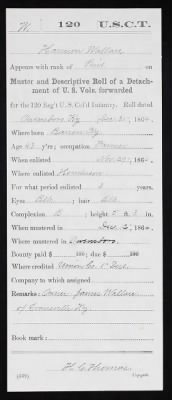 W | 120 | U.S.C.T.
Harrison Wallace
Appears with rank of Priv. on
Muster and Descriptive Roll of a Detach-
ment of U. S. Vols. forwarded
for the 120 Reg't U. S. Col'd Infantry. Roll dated
Owensboro Ky Dec. 31, 1864.
Where born Barren Ky.
Age 43 y'rs; occupation Farmer
When enlisted Nov. 29, 1864.
Where enlisted Henderson
For what period enlisted 3 years.
Eyes Blk; hair Blk
Complexion B; height 5 ft. 3 in.
When mustered in Dec. 2, 1864.
Where mustered in Owensboro
Bounty paid $ 100; due $ 100
Where credited Union Co.
Company to which assigned
Remarks: Owner James Wallace
of Ky.
Book mark:
(339) Copyist.